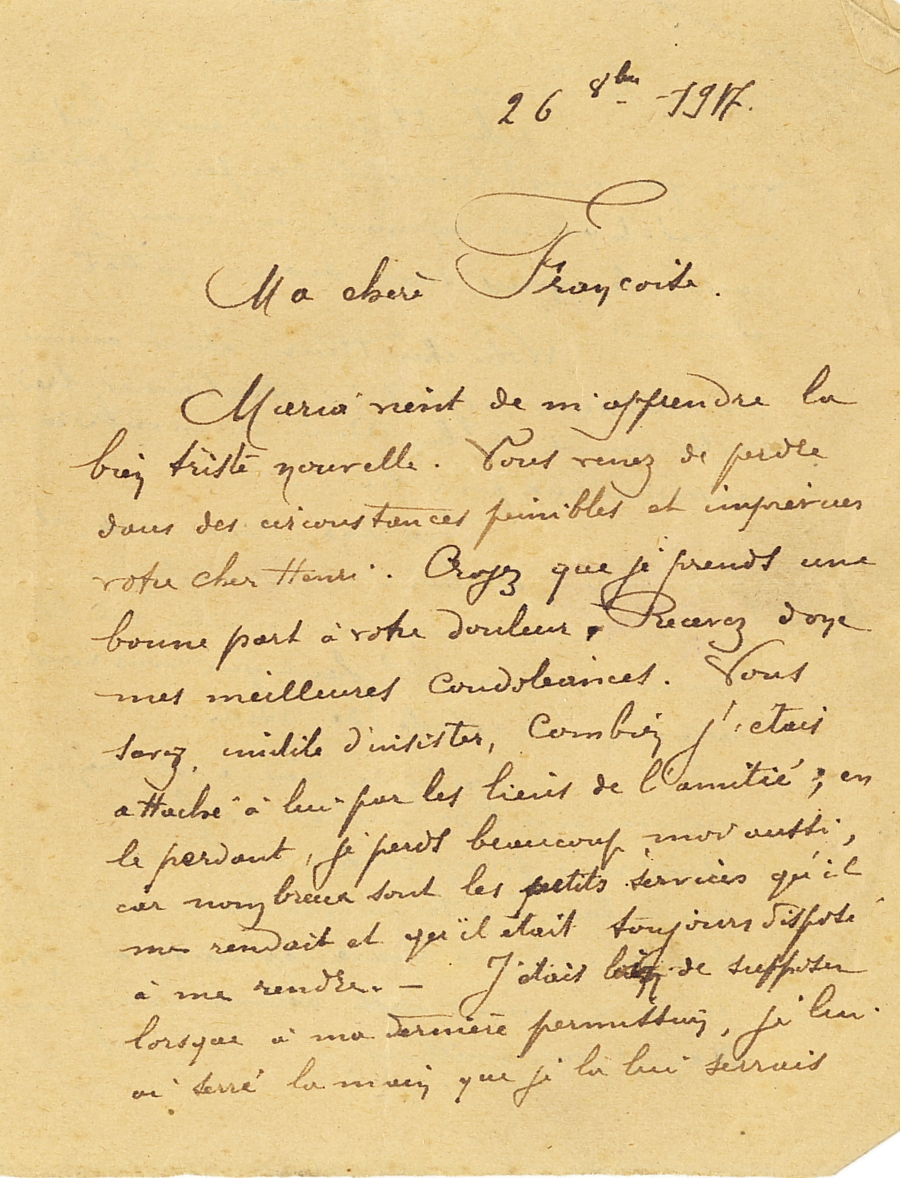 26 8bre 1917.
Ma chère Françoise.
Maria vient de m'apprendre la
bien triste nouvelle. Vous venez de perdre
dans des circonstances pénibles et imprévues
votre cher Henri. Croyez que je prends une
bonne part à votre douleur. Recevez donc
mes meilleures condoléances. Vous
savez, inutile d'insister, combien j'étais
attaché à lui par les liens de l'amitié ; en
le perdant, je perds beaucoup moi aussi,
car nombreux sont les petits services qu'il
me rendait et qu'il était toujours disposé
à me rendre. — J'étais loin de supposer
lorsque à ma dernière permission, je lui
ai serré la main que je la lui serrais